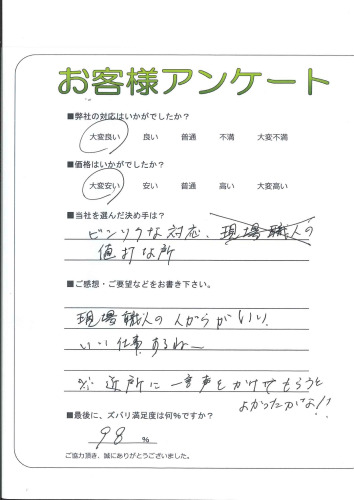 お客様アンケート
■弊社の対応はいかがでしたか？
大変良い 良い 普通 不満 大変不満
■価格はいかがでしたか？
大変安い 安い 普通 高い 大変高い
■当社を選んだ決め手は？
ビンソクな対応、現場職人の
値打な所
■ご感想・ご要望などをお書き下さい。
現場職人の人がらがいい
いい仕事あるねー
※ 近所に一言声をかけてもらうと
よかったかな!!
■最後に、ズバリ満足度は何％ですか？
98 ％
ご協力頂き、誠にありがとうございました。